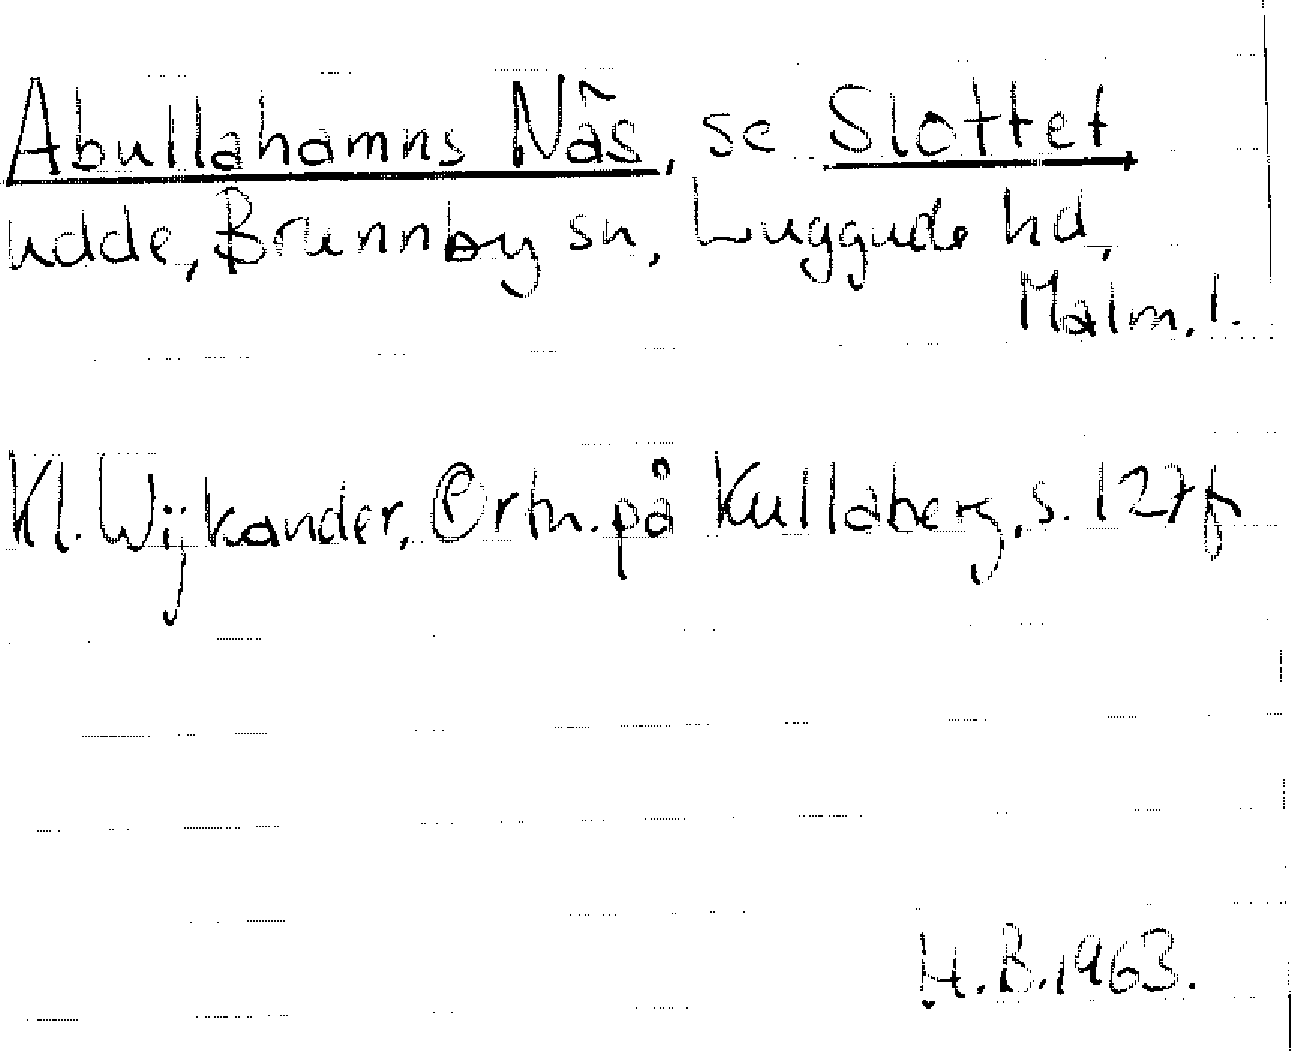 Abullahamns Näs, se Slottet,
udde, Brunnby sn, Luggude hd,
Malm. l.
Kl. Wijkander, Ortn. på Kullaberg, s. 127 f
H.B. 1963.